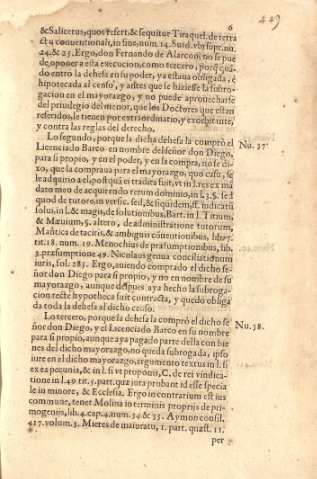 6
449
& Salicetus, quos refert, & sequitur Tiraquel. de retra
ctu conuentionali, in fine, num. 14. Suid. vbi supr. nu.
24. & 25. Ergo, don Fernando de Alarcon, no se pue
de, oponer a esta execucion, como tercero, porq̃ quã-
do entro la dehesa en su poder, ya estaua obligada, è
hipotecada al censo, y antes que se hiziesse la subro-
gacion en el mayorazgo, y no puede aprouecharse
del priuilegio del menor, que los Doctores que estan
referidos, le tienen por extraordinario, y exorbitante,
y contra las reglas del derecho.
Lo segundo, porque la dicha dehesa la comprò el
Licenciado Barco en nombre del señor don Diego,
para si propio, y en el poder, y en la compra, no se di-
xo, que la compraua para el mayorazgo, quo casu, se
le adquirio a el, postquã ei tradita fuit, vt in l. res ex mã
dato meo de acquirendo rerum dominio, in l. 3. §. sed
quod de tutore, in verſic. sed, & siquidem, ff. indicatũ
solui, in l. & magis, de solutionibus. Bart. in l. Titium,
& Mæuium, 5. altero, de administratione tutorum,
Mantica de tacitis, & ambiguis conuentionibus, lib. 7.
tit. 18. num. 19. Menochius de præsumptionibus, lib.
3. præsumptione 49. Nicolaus genua conciliationum
iuris, fol. 281. Ergo, auiendo comprado el dicho se
ñor don Diego para si propio, y no en nombre de su
mayorazgo, aunque despues aya hecho la subroga-
cion recte hypotheca fuit contracta, y quedò obliga
da toda la dehesa al dicho censo.
Lo tercero, porque la dehesa la comprò el dicho se
ñor don Diego, y el Licenciado Barco en su nombre
para si propio, aunque aya pagado parte della con bie
nes del dicho mayorazgo, no queda subrogada, ipso
iure en al dicho mayorazgo, argumento textus in l. si
ex ea pecunia, & in l. si vt proponis, C. de rei vindica-
tione in l. 49 tit. 5. part. quæ iura probant id esse specia
le in minore, & Ecclesia. Ergo in contrarium est ius
commune, tenet Molina in terminis proprijs de pri-
mogenijs, lib. 4. cap. 4. num. 34. & 35. Aymon consil.
417. volum. 3. Mieres de maioratu, 1. part. quæst. 11.
per
Nu. 37.
Nu. 38.